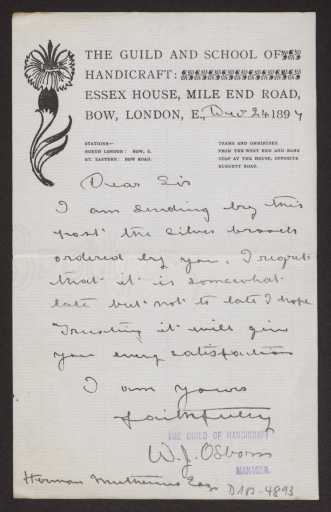 THE GUILD AND SCHOOL OF
HANDICRAFT:
ESSEX HOUSE, MILE END ROAD,
BOW, LONDON, E., Dec 24 1897
STATIONS—
NORTH LONDON: BOW, E.
GT. EASTERN: BOW ROAD.
TRAMS AND OMNIBUSES
FROM THE WEST END AND BANK
STOP AT THE HOUSE, OPPOSITE
BURDETT ROAD.
Dear Sir
I am sending by this
post the silver brooch
ordered by you. I regret
that it is somewhat
late but not to late I hope
Trusting it will give
you every satisfaction
I am yours
faithfully
THE GUILD OF HANDICRAFT
W. J. Osborn
MANAGER.
Herman Muthesius Esq
D102-4893